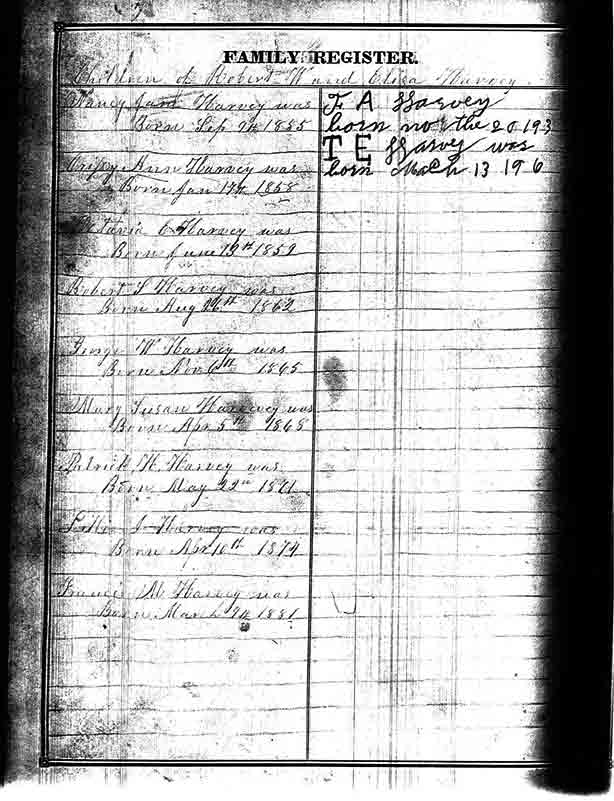 FAMILY REGISTER.
Children of Robert W and Eliza Harvey
Nancy Jane Harvey was
Born Sep 9th 1855
Ann Harvey was
Born Jan 17th 1858
C Harvey was
Born June 19th 1859
Robert S Harvey was
Born Aug 26th 1862
George W Harvey was
Born Nov 6th 1865
Mary Susan Harvey was
Born Apr 5th 1868
Patrick H. Harvey was
Born May 22nd 1871
J Harvey was
Born Apr 10th 1874
Francis M Harvey was
Born March 9th 1881
F A Harvey
born nov the 20 193
T E Harvey was
born Mach 13 196